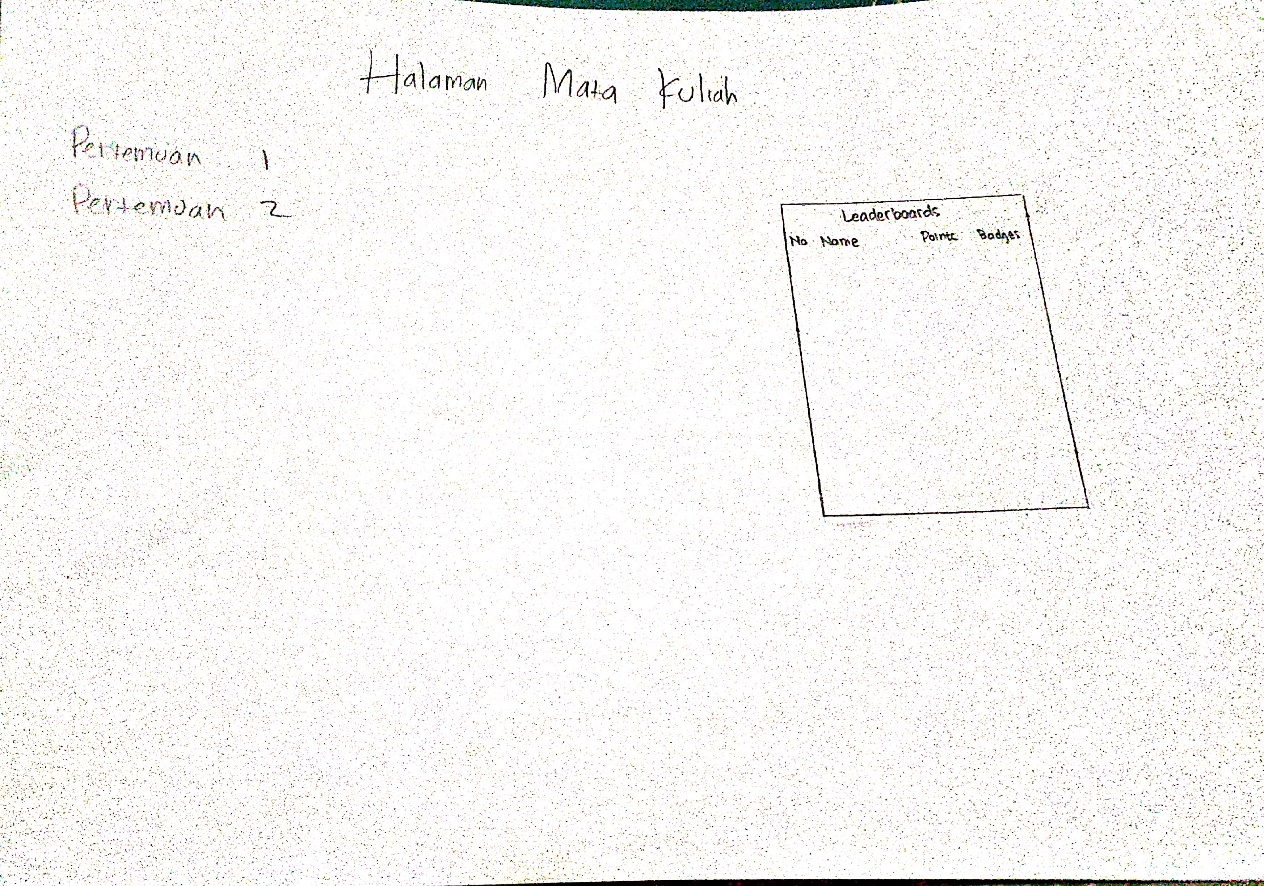 Halaman Mata Kuliah
Pertemuan 1
Pertemuan 2
Leaderboards
No Name Points Badges